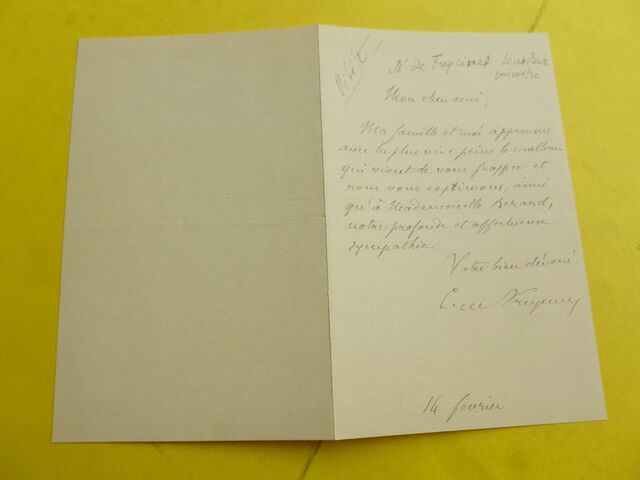 Mr de Freycinet Sénateur
ministre
Mon cher ami,
Ma famille et moi apprenons
avec la plus vive peine le malheur
qui vient de vous frapper et
nous vous exprimons, ainsi
qu'à Mademoiselle Berard,
notre profonde et affectueuse
sympathie.
Votre bien dévoué
C. de Freycinet
14 fevrier